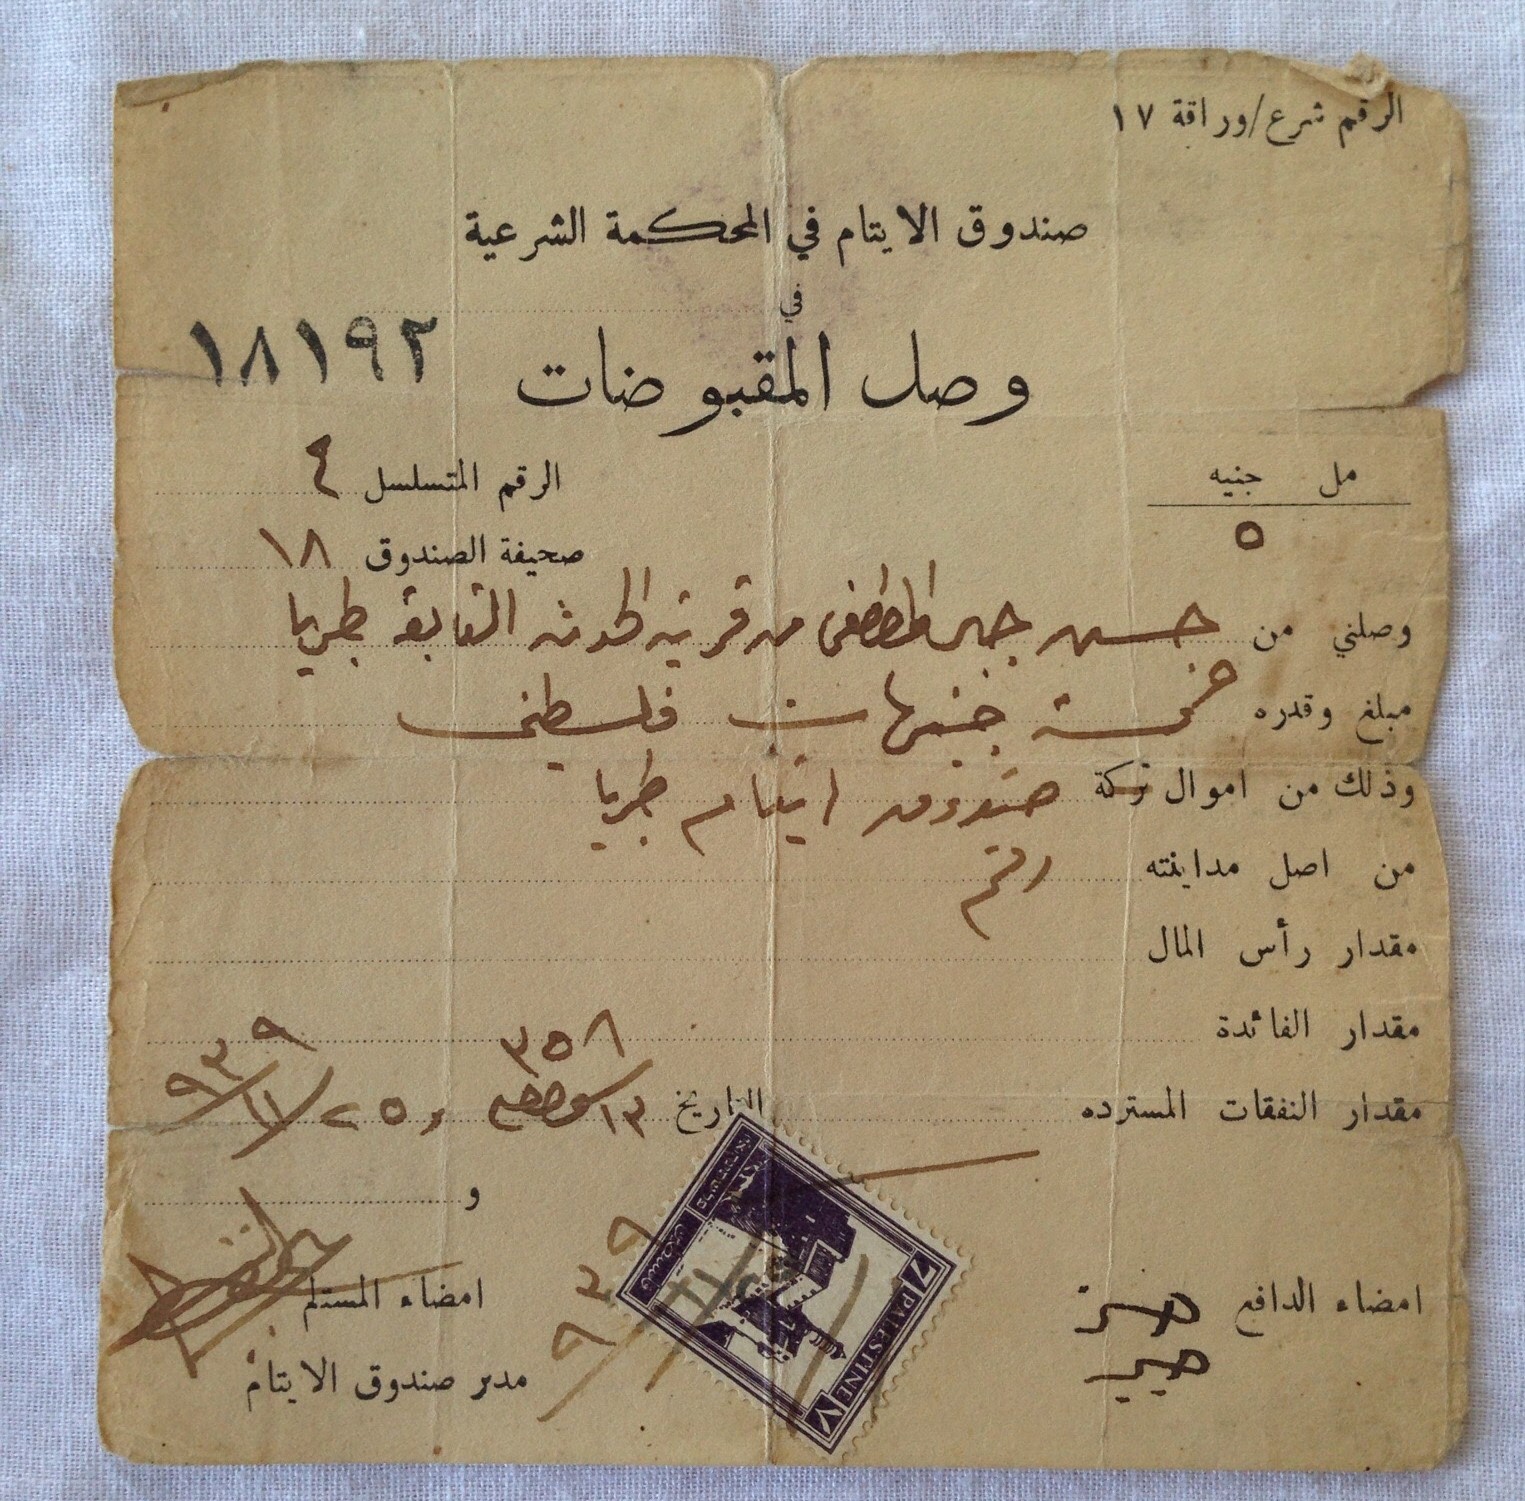 الرقم شرع/وراقة ١٧
صندوق الايتام في المحكمة الشرعية
في
١٨١٩٢
وصل المقبوضات
مل جنيه
٥
الرقم المتسلسل ٤
صحيفة الصندوق ١٨
وصلني من حسين المصطفى من قرية الحدثه التابعة طبريا
مبلغ وقدره خمسة جنيهات فلسطيني
وذلك من اموال تركة صندوق ايتام طبريا
من اصل مداينته رقم
مقدار رأس المال
مقدار الفائدة
مقدار النفقات المسترده
التاريخ ١٣ ٣٥٨ و ٢٥/١١/٩٣٩
و
امضاء الدافع
امضاء المستلم
مدير صندوق الايتام
PALESTINE
فلسطين
7